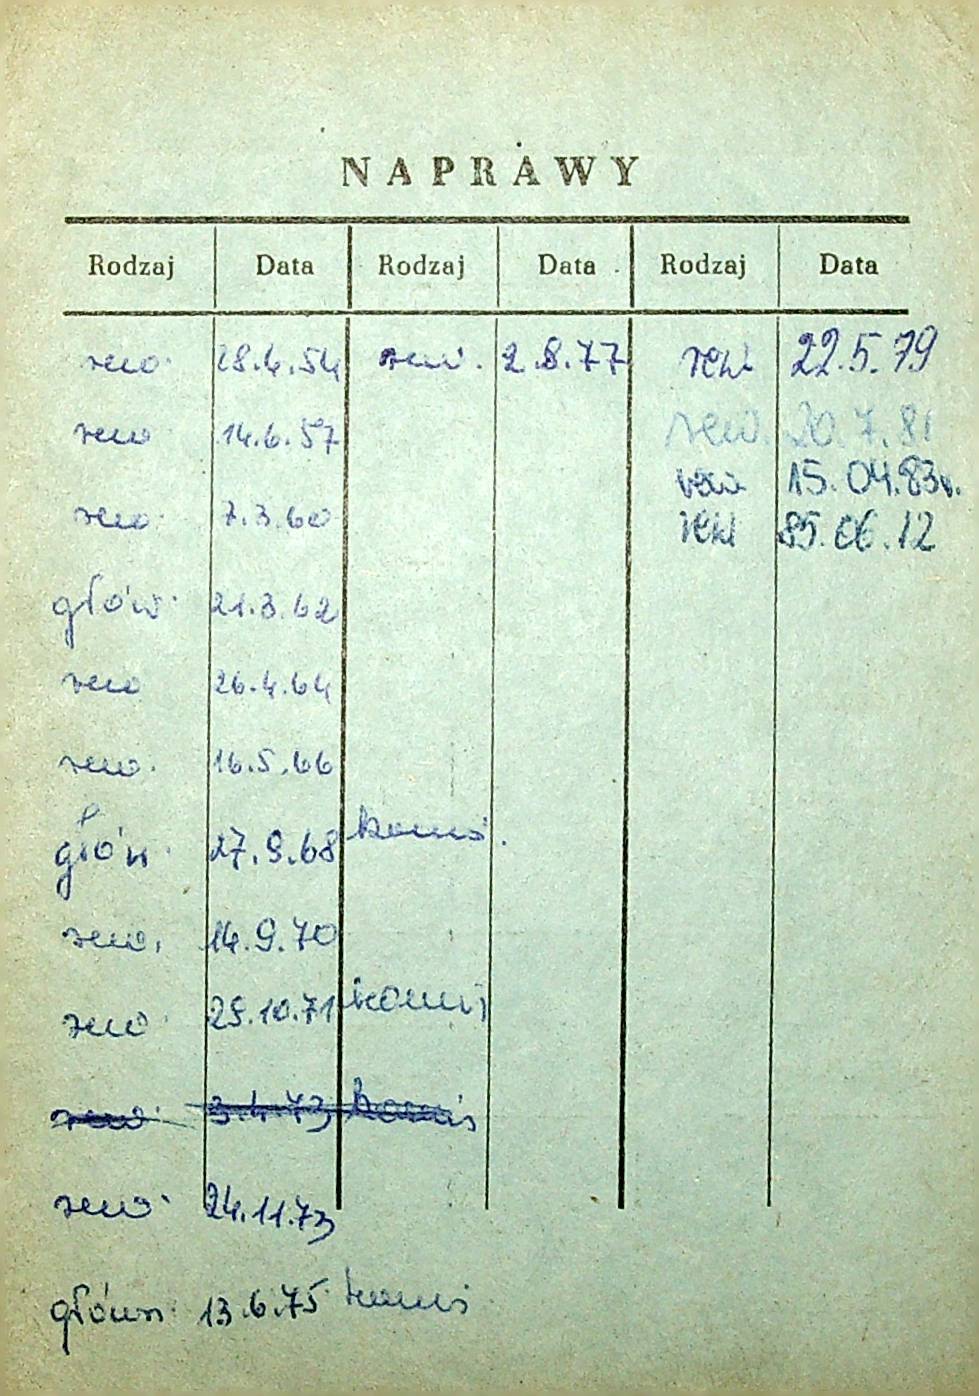 NAPRAWY
Rodzaj Data Rodzaj Data Rodzaj Data
rew. 28.4.54 rew. 2.8.77 rew 22.5.79
rew 14.6.57 rew. 20.7.81
rew 15.04.83r.
rew 7.3.60 rew 85.06.12
głów. 21.3.62
rew 26.4.64
rew. 16.5.66
głów. 27.9.68 komis.
rew. 14.9.70
rew. 29.10.71 komis
rew. 3.4.73 komis
rew. 24.11.73
główn. 13.6.75 komis